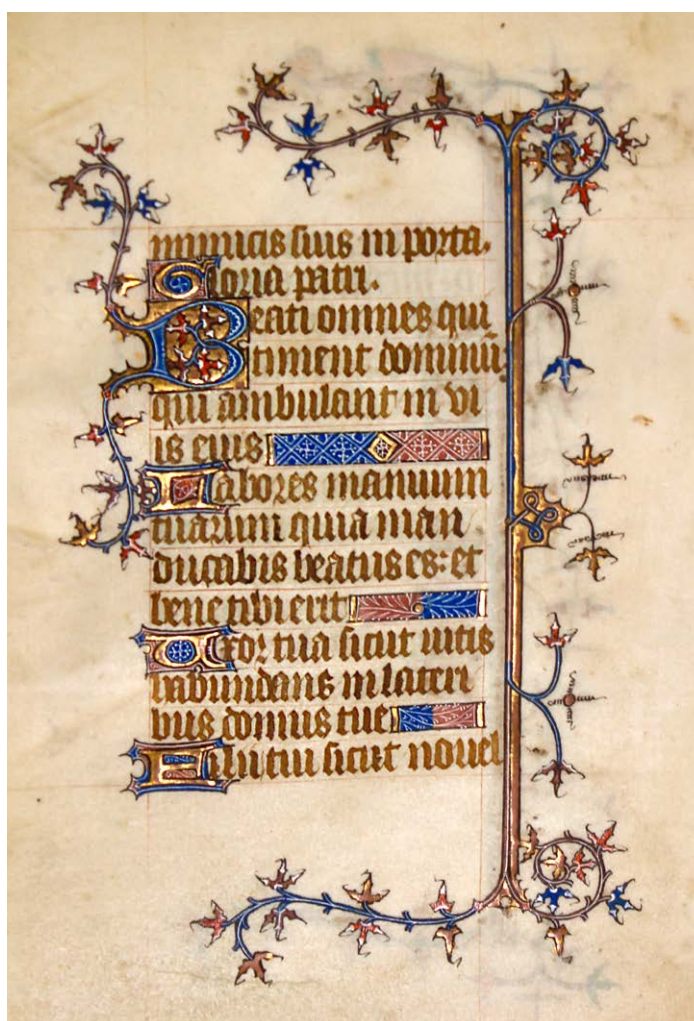 inimicis suis in porta.
Gloria patri.
Beati omnes qui
timent dominū
qui ambulant in vi
is eius
Labores manuum
tuarum quia man
ducabis beatus es: et
bene tibi erit
Uxor tua sicut uitis
habundans in lateri
bus domus tue
Filii tui sicut nouel